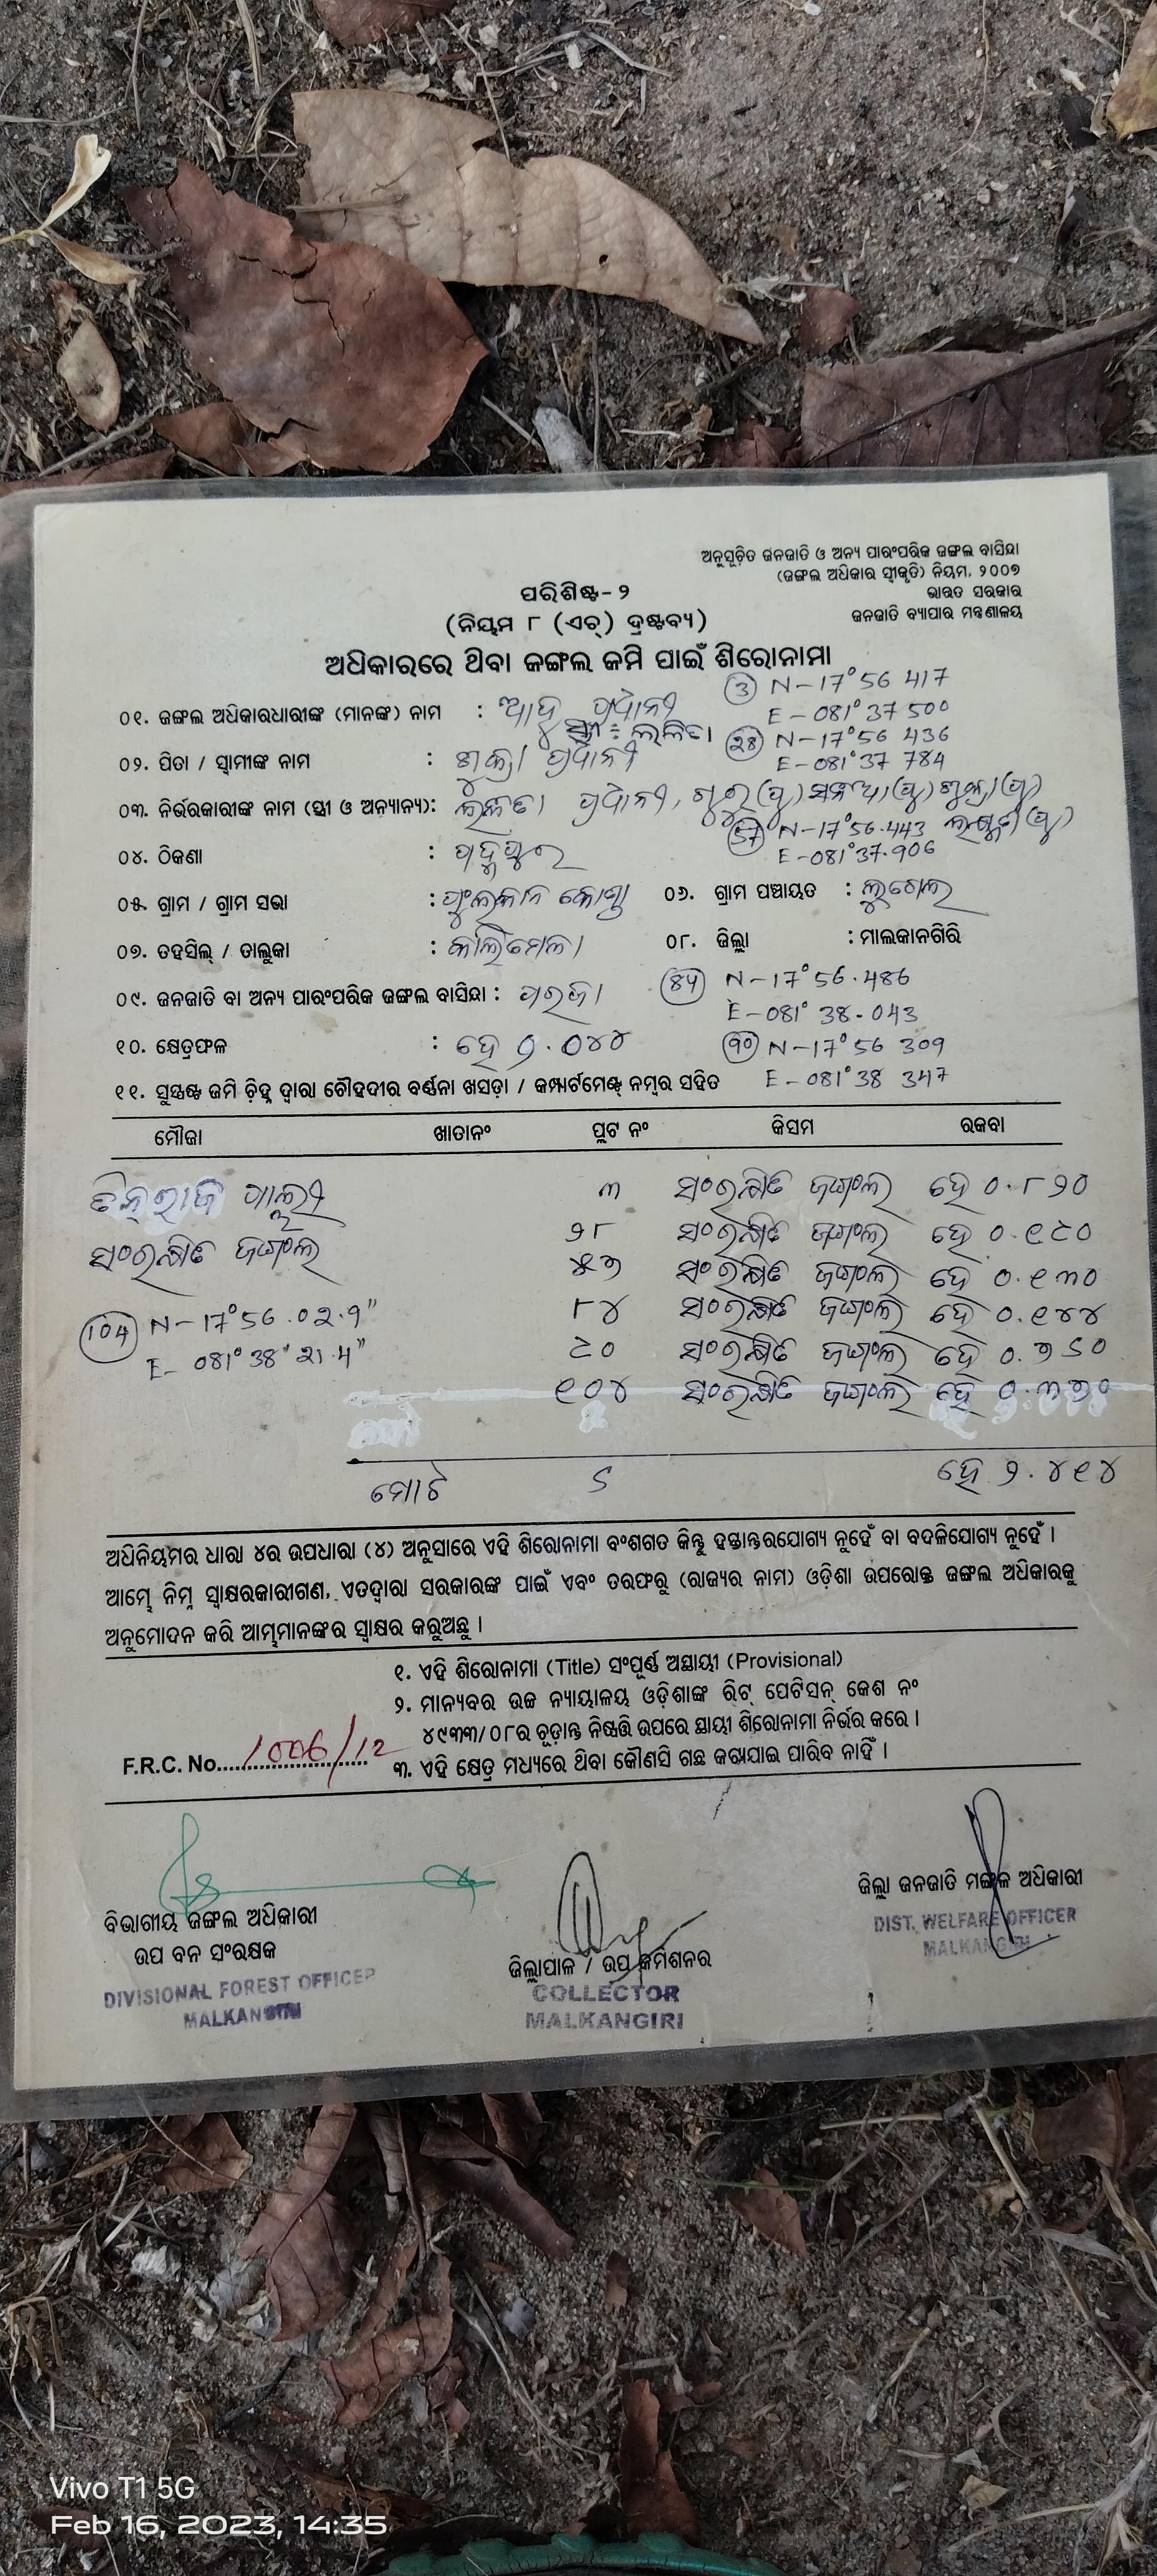 ଅନୁସୂଚିତ ଜନଜାତି ଓ ଅନ୍ୟ ପାରଂପରିକ ଜଙ୍ଗଲ ବାସିନ୍ଦା
(ଜଙ୍ଗଲ ଅଧିକାର ସ୍ୱୀକୃତି) ନିୟମ, ୨୦୦୭
ଭାରତ ସରକାର
ଜନଜାତି ବ୍ୟାପାର ମନ୍ତ୍ରଣାଳୟ
ପରିଶିଷ୍ଟ-୨
(ନିୟମ ୮ (ଏଚ୍) ଦ୍ରଷ୍ଟବ୍ୟ)
ଅଧିକାରରେ ଥିବା ଜଙ୍ଗଲ ଜମି ପାଇଁ ଶିରୋନାମା
(3) N-17°56 417
E-081°37 500
୦୧. ଜଙ୍ଗଲ ଅଧିକାରଧାରୀଙ୍କ (ମାନଙ୍କ) ନାମ :
ସ୍ତ୍ରୀ ÷ ଲଳିତା
(28) N-17°56 436
E-081°37 784
୦୨. ପିତା / ସ୍ୱାମୀଙ୍କ ନାମ : ଶୁକ୍ରା
୦୩. ନିର୍ଭରକାରୀଙ୍କ ନାମ (ସ୍ତ୍ରୀ ଓ ଅନ୍ୟାନ୍ୟ): ଲଳିତା
(57) N-17°56.443
E-081°37.906
୦୪. ଠିକଣା : ପଦ୍ମପୁର
୦୫. ଗ୍ରାମ / ଗ୍ରାମ ସଭା : ୦୬. ଗ୍ରାମ ପଞ୍ଚାୟତ :
୦୭. ତହସିଲ୍ / ତାଲୁକା : କାଲିମେଳା ୦୮. ଜିଲ୍ଲା : ମାଲକାନଗିରି
୦୯. ଜନଜାତି ବା ଅନ୍ୟ ପାରଂପରିକ ଜଙ୍ଗଲ ବାସିନ୍ଦା : ପରଜା
(84) N-17°56.486
E-081°38.043
୧୦. କ୍ଷେତ୍ରଫଳ : ହେ
(90) N-17°56 309
E-081°38 347
୧୧. ସୁସ୍ପଷ୍ଟ ଜମି ଚିହ୍ନ ଦ୍ୱାରା ଚୌହଦୀର ବର୍ଣ୍ଣନା ଖସଡ଼ା / କମ୍ପାର୍ଟମେଣ୍ଟ୍ ନମ୍ବର ସହିତ
ମୌଜା ଖାତାନଂ ପ୍ଲଟ ନଂ କିସମ ରକବା
୩ ସଂରକ୍ଷିତ ଜଙ୍ଗଲ ହେ ୦.୮୨୦
୨୮ ସଂରକ୍ଷିତ ଜଙ୍ଗଲ ହେ ୦.୧୯୦
ସଂରକ୍ଷିତ ଜଙ୍ଗଲ
୫୭ ସଂରକ୍ଷିତ ଜଙ୍ଗଲ ହେ ୦.୧୩୦
୮୪ ସଂରକ୍ଷିତ ଜଙ୍ଗଲ ହେ ୦.୧୪୪
(104) N-17°56.02.9"
E-081°38'21.4"
୯୦ ସଂରକ୍ଷିତ ଜଙ୍ଗଲ ହେ ୦.୭୬୦
୧୦୪ ସଂରକ୍ଷିତ ଜଙ୍ଗଲ ହେ ୦.୩୭୦
ମୋଟ ୬ ହେ ୨.୪୧୪
ଅଧିନିୟମର ଧାରା ୪ର ଉପଧାରା (୪) ଅନୁସାରେ ଏହି ଶିରୋନାମା ବଂଶଗତ କିନ୍ତୁ ହସ୍ତାନ୍ତରଯୋଗ୍ୟ ନୁହେଁ ବା ବଦଳିଯୋଗ୍ୟ ନୁହେଁ ।
ଆମ୍ଭେ ନିମ୍ନ ସ୍ୱାକ୍ଷରକାରୀଗଣ, ଏତଦ୍ଦ୍ୱାରା ସରକାରଙ୍କ ପାଇଁ ଏବଂ ତରଫରୁ (ରାଜ୍ୟର ନାମ) ଓଡ଼ିଶା ଉପରୋକ୍ତ ଜଙ୍ଗଲ ଅଧିକାରକୁ
ଅନୁମୋଦନ କରି ଆମ୍ଭମାନଙ୍କର ସ୍ୱାକ୍ଷର କରୁଅଛୁ ।
୧. ଏହି ଶିରୋନାମା (Title) ସଂପୂର୍ଣ୍ଣ ଅସ୍ଥାୟୀ (Provisional)
୨. ମାନ୍ୟବର ଉଚ୍ଚ ନ୍ୟାୟାଳୟ ଓଡ଼ିଶାଙ୍କ ରିଟ୍ ପେଟିସନ୍ କେଶ ନଂ
୪୯୩୩/୦୮ର ଚୂଡ଼ାନ୍ତ ନିଷ୍ପତ୍ତି ଉପରେ ସ୍ଥାୟୀ ଶିରୋନାମା ନିର୍ଭର କରେ ।
F.R.C. No. 1006/12
୩. ଏହି କ୍ଷେତ୍ର ମଧ୍ୟରେ ଥିବା କୌଣସି ଗଛ କଟାଯାଇ ପାରିବ ନାହିଁ ।
ବିଭାଗୀୟ ଜଙ୍ଗଲ ଅଧିକାରୀ
ଉପ ବନ ସଂରକ୍ଷକ
DIVISIONAL FOREST OFFICER
MALKANGIRI
ଜିଲ୍ଲାପାଳ / ଉପ କମିଶନର
COLLECTOR
MALKANGIRI
ଜିଲ୍ଲା ଜନଜାତି ମଙ୍ଗଳ ଅଧିକାରୀ
DIST. WELFARE OFFICER
MALKANGIRI
Vivo T1 5G
Feb 16, 2023, 14:35